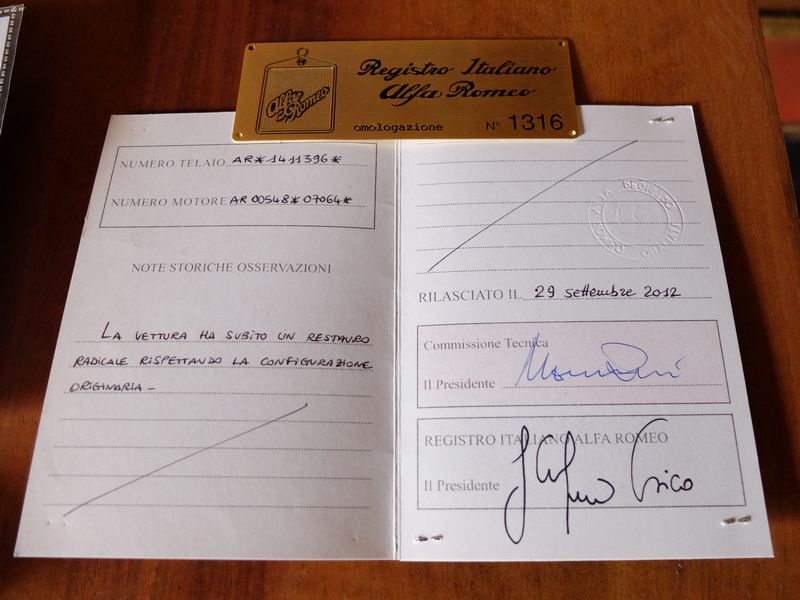 Registro Italiano
Alfa Romeo
Alfa Romeo
omologazione N° 1316
NUMERO TELAIO AR*1411396*
NUMERO MOTORE AR 00548*07064*
NOTE STORICHE OSSERVAZIONI
LA VETTURA HA SUBITO UN RESTAURO
RADICALE RISPETTANDO LA CONFIGURAZIONE
ORIGINARIA-
RILASCIATO IL 29 settembre 2012
Commissione Tecnica
Il Presidente
REGISTRO ITALIANO ALFA ROMEO
Il Presidente